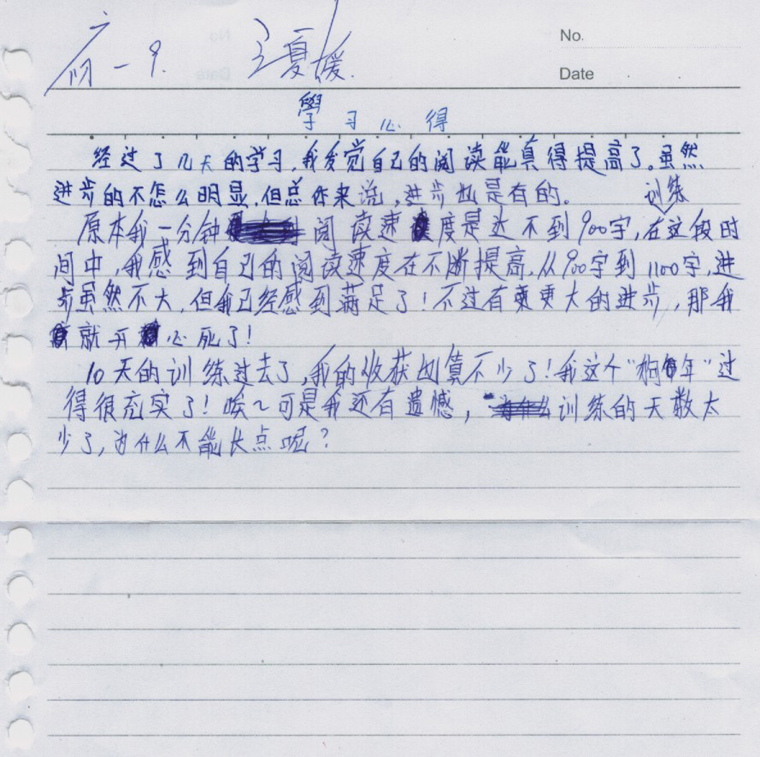 No.
一9. 夏媛
Date
學习心得
经过了几天的学习,我发觉自己的阅读能真得提高了。虽然
进步的不怎么明显,但总体来说,进步也是有的。
训练
原本我一分钟阅读速度是达不到900字,在这段时
间中,我感到自己的阅读速度在不断提高,从900字到1100字,进
步虽然不大,但我已经感到满足了!不过有更大的进步,那我
就开心死了!
10天的训练过去了,我的收获划算不少了!我这个"狗年"过
得很充实了!唉~可是我还有遗憾,训练的天数太
少了,为什么不能长点呢?